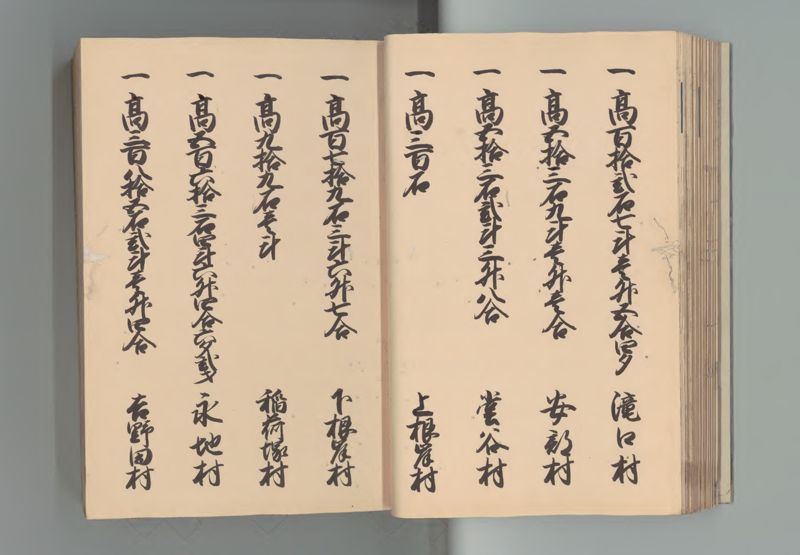 一 高百拾弐石七斗壱升五合四夕 滝口村
一 高五拾三石九斗壱升壱合 安部村
一 高五拾三石弐斗三升八合 堂谷村
一 高三百石 上根岸村
一 高百七拾九石三斗六升七合 下根岸村
一 高九拾九石壱斗 稲荷塚村
一 高五百六拾三石四斗六升四合六夕弐才 永地村
一 高三百八拾五石弐斗壱升四合 吉野田村